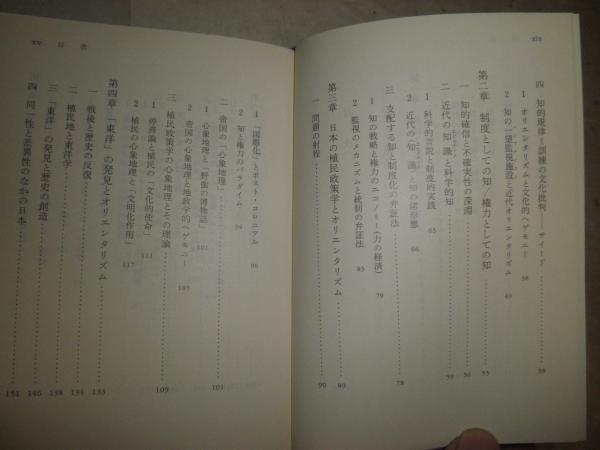 xiv
四 知的規律＝訓練の文化批判 サイード 38
1 オリエンタリズムと文化的ヘゲモニー 38
2 知の一望監視施設と近代オリエンタリズム 49
第二章 制度としての知／権力としての知 55
一 知的確信と不確実性の深淵 56
二 近代の〈知〉識と科学的知 59
1 科学的言説と制度的実践 65
2 近代の〈知〉識と知の諸形態 66
三 支配する知と制度化の弁証法 78
1 知の戦略と権力のエコノミー(力の経済) 79
2 監視のメカニズムと統制の弁証法 83
第三章 日本の植民政策学とオリエンタリズム 89
一 問題の射程 90
xv 目次
1 「国際化」とポスト・コロニアル 90
2 知と権力のパラダイム 94
二 帝国の「心象地理」 101
1 心象地理と「野蛮の博物誌」 101
2 帝国の心象地理と地政学的ヘゲモニー 105
三 植民政策学の心象地理とその理論 109
1 停滞論と植民の「文化的使命」 111
2 植民の心象地理と「文明化作用」 117
第四章 「東洋」の発見とオリエンタリズム 133
一 戦後と歴史の反復 134
二 植民地と東洋学 138
三 「東洋」の発見と歴史の創造 146
四 同一性と差異性のなかの日本 151